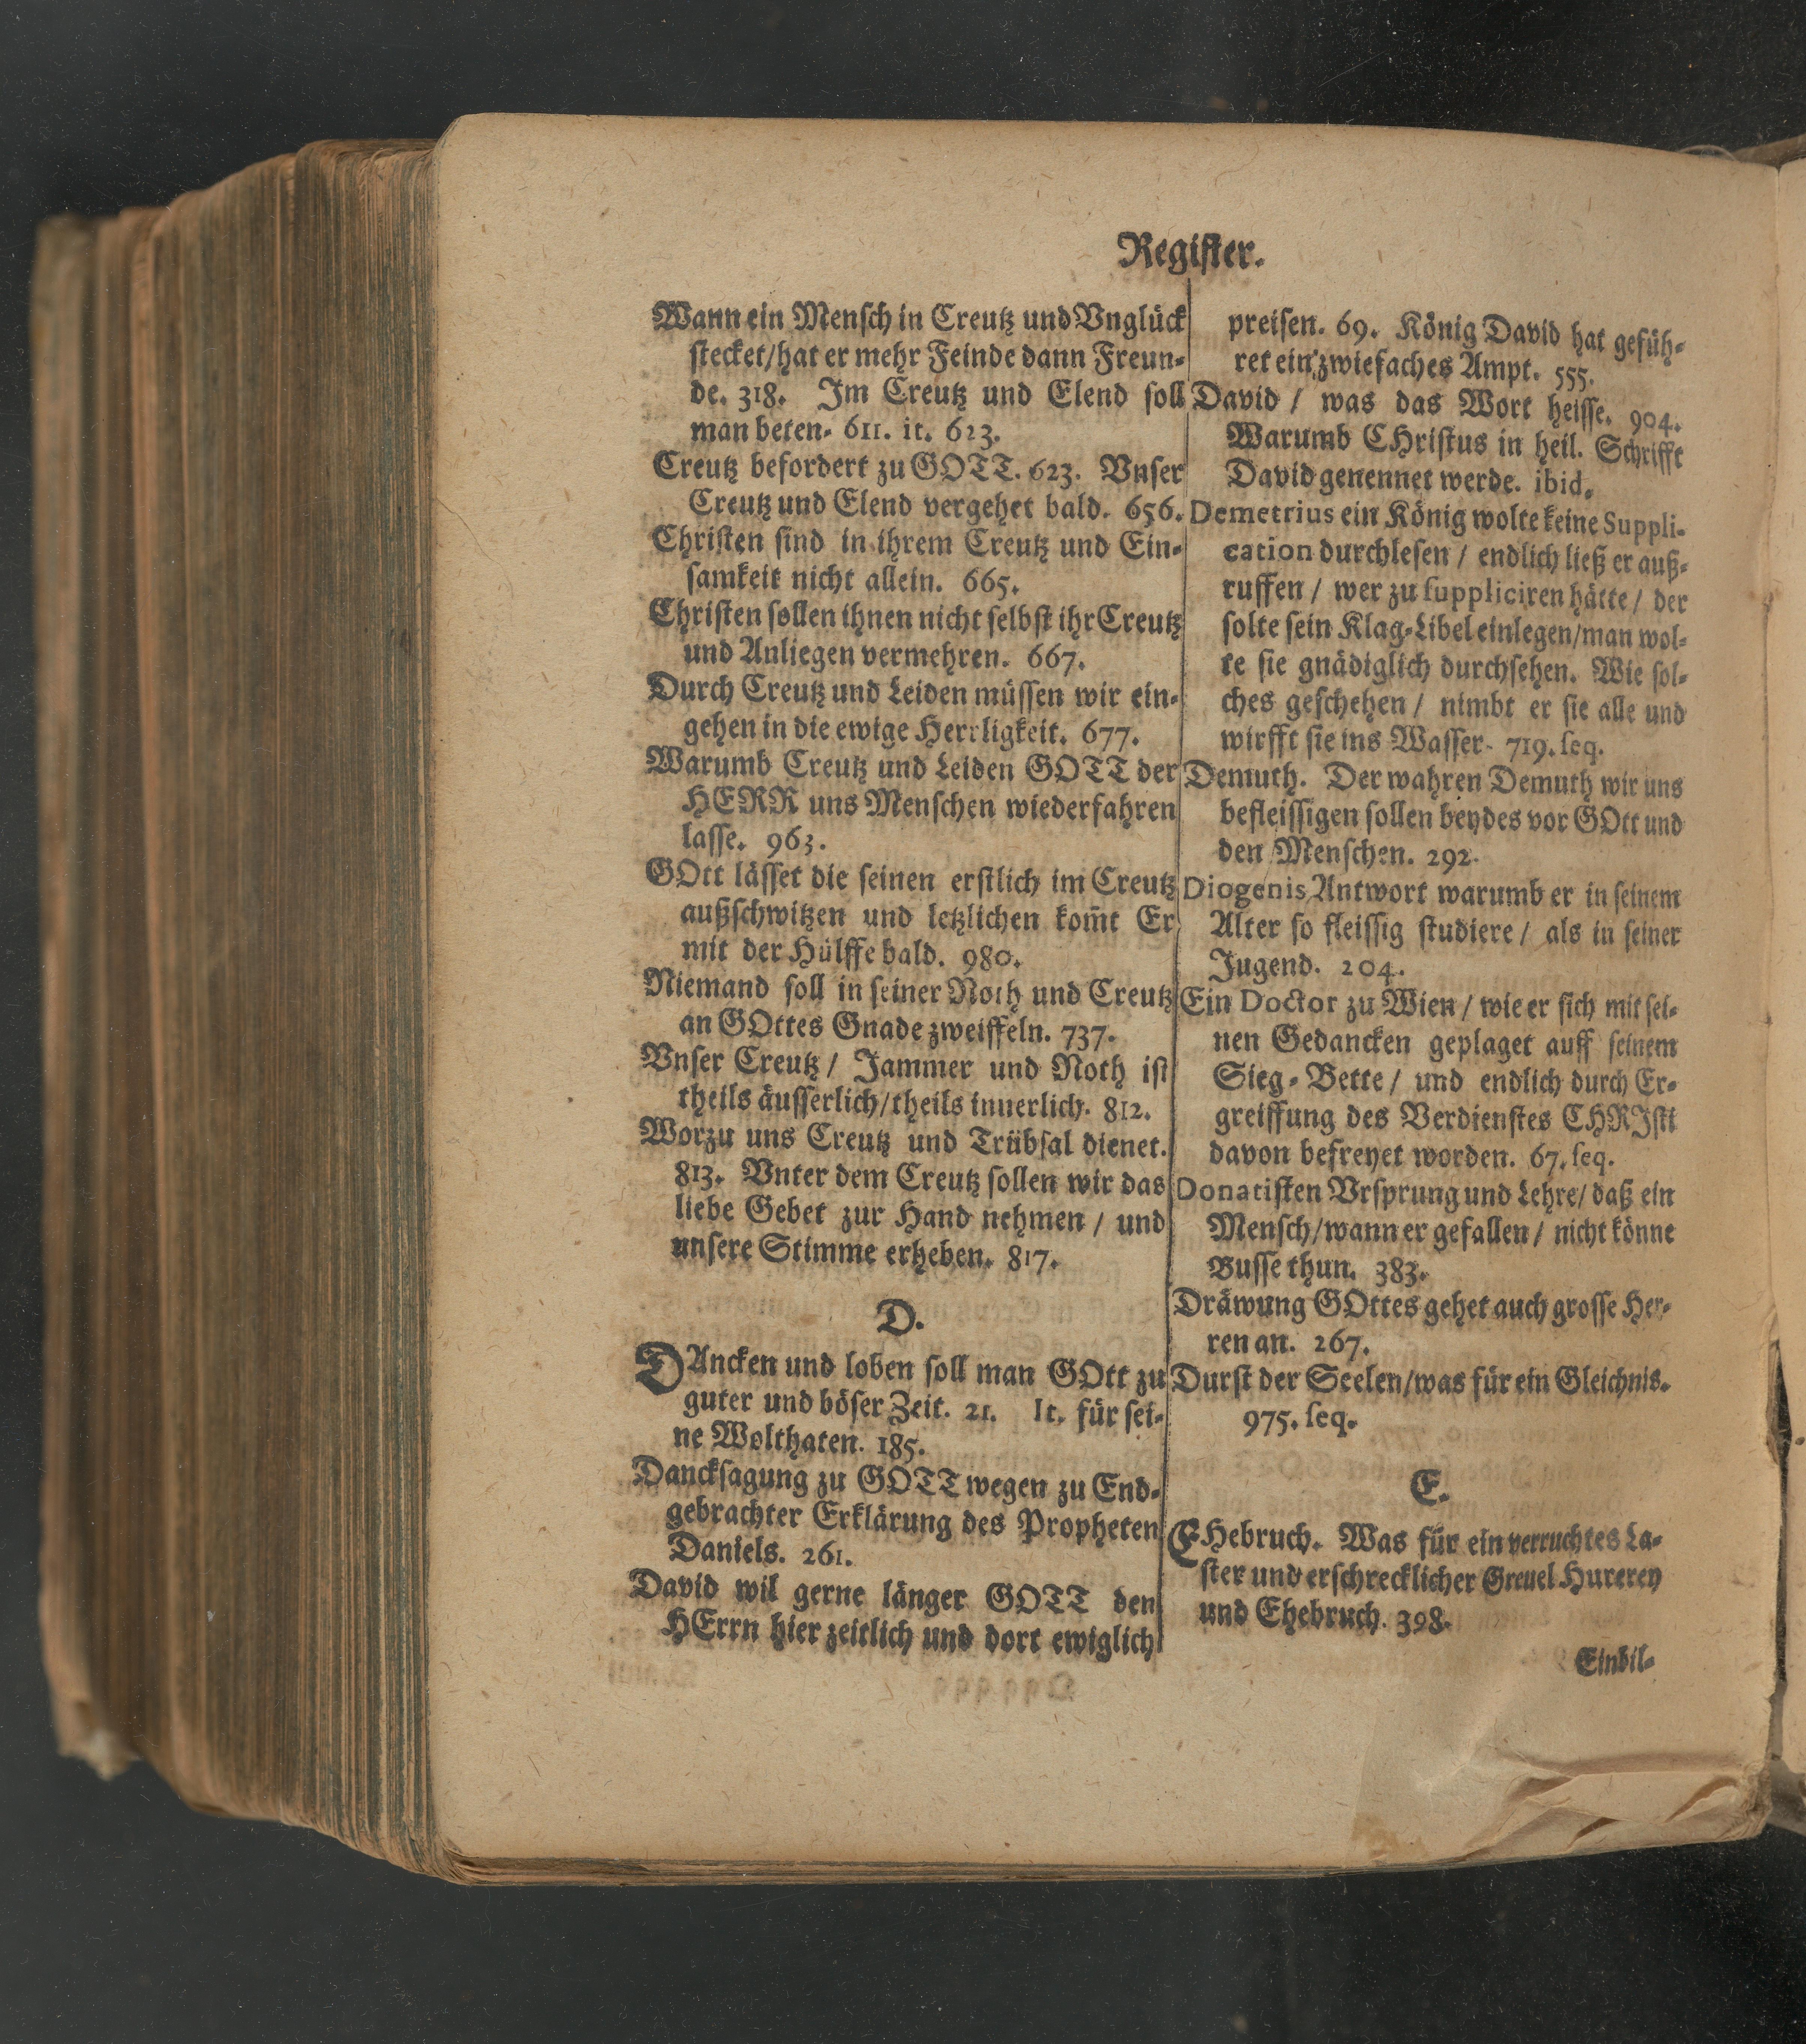 Register.
Wann ein Mensch in Creutz und Vnglück
stecket/hat er mehr Feinde dann Freun-
de. 318. Im Creutz und Elend soll
man beten. 611. it. 623.
Creutz befordert zu GOTT. 623. Vnser
Creutz und Elend vergehet bald. 656.
Christen sind in ihrem Creutz und Ein-
samkeit nicht allein. 665.
Christen sollen ihnen nicht selbst ihr Creutz
und Anliegen vermehren. 667.
Durch Creutz und Leiden müssen wir ein-
gehen in die ewige Herrligkeit. 677.
Warumb Creutz und Leiden GOTT der
HERR uns Menschen wiederfahren
lasse. 963.
GOtt lässet die seinen erstlich im Creutz
außschwitzen und letzlichen kom̃t Er
mit der Hülffe bald. 980.
Niemand soll in seiner Noth und Creutz
an GOttes Gnade zweiffeln. 737.
Vnser Creutz / Jammer und Noth ist
theils äusserlich/theils innerlich. 812.
Worzu uns Creutz und Trübsal dienet.
813. Vnter dem Creutz sollen wir das
liebe Gebet zur Hand nehmen / und
unsere Stimme erheben. 817.
D.
DAncken und loben soll man GOtt zu
guter und böser Zeit. 21. It. für sei-
ne Wolthaten. 185.
Dancksagung zu GOTT wegen zu End-
gebrachter Erklärung des Propheten
Daniels. 261.
David wil gerne länger GOTT den
HErrn hier zeitlich und dort ewiglich
preisen. 69. König David hat gefüh-
ret ein zwiefaches Ampt. 555.
David / was das Wort heisse. 904.
Warumb CHristus in heil. Schrifft
David genennet werde. ibid.
Demetrius ein König wolte keine Suppli-
cation durchlesen / endlich ließ er auß-
ruffen / wer zu suppliciren hätte / der
solte sein Klag-Libel einlegen/man wol-
te sie gnädiglich durchsehen. Wie sol-
ches geschehen / nimbt er sie alle und
wirfft sie ins Wasser. 719. seq.
Demuth. Der wahren Demuth wir uns
befleissigen sollen beydes vor GOtt und
den Menschen. 292.
Diogenis Antwort warumb er in seinem
Alter so fleissig studiere / als in seiner
Jugend. 204.
Ein Doctor zu Wien / wie er sich mit sei-
nen Gedancken geplaget auff seinem
Sieg-Bette / und endlich durch Er-
greiffung des Verdienstes CHRJsti
davon befreyet worden. 67. seq.
Donatisten Vrsprung und Lehre/ daß ein
Mensch/wann er gefallen / nicht könne
Busse thun. 383.
Dräwung GOttes gehet auch grosse Her-
ren an. 267.
Durst der Seelen/was für ein Gleichnis.
975. seq.
E.
EHebruch. Was für ein verruchtes La-
ster und erschrecklicher Greuel Hurerey
und Ehebruch. 398.
Einbil-